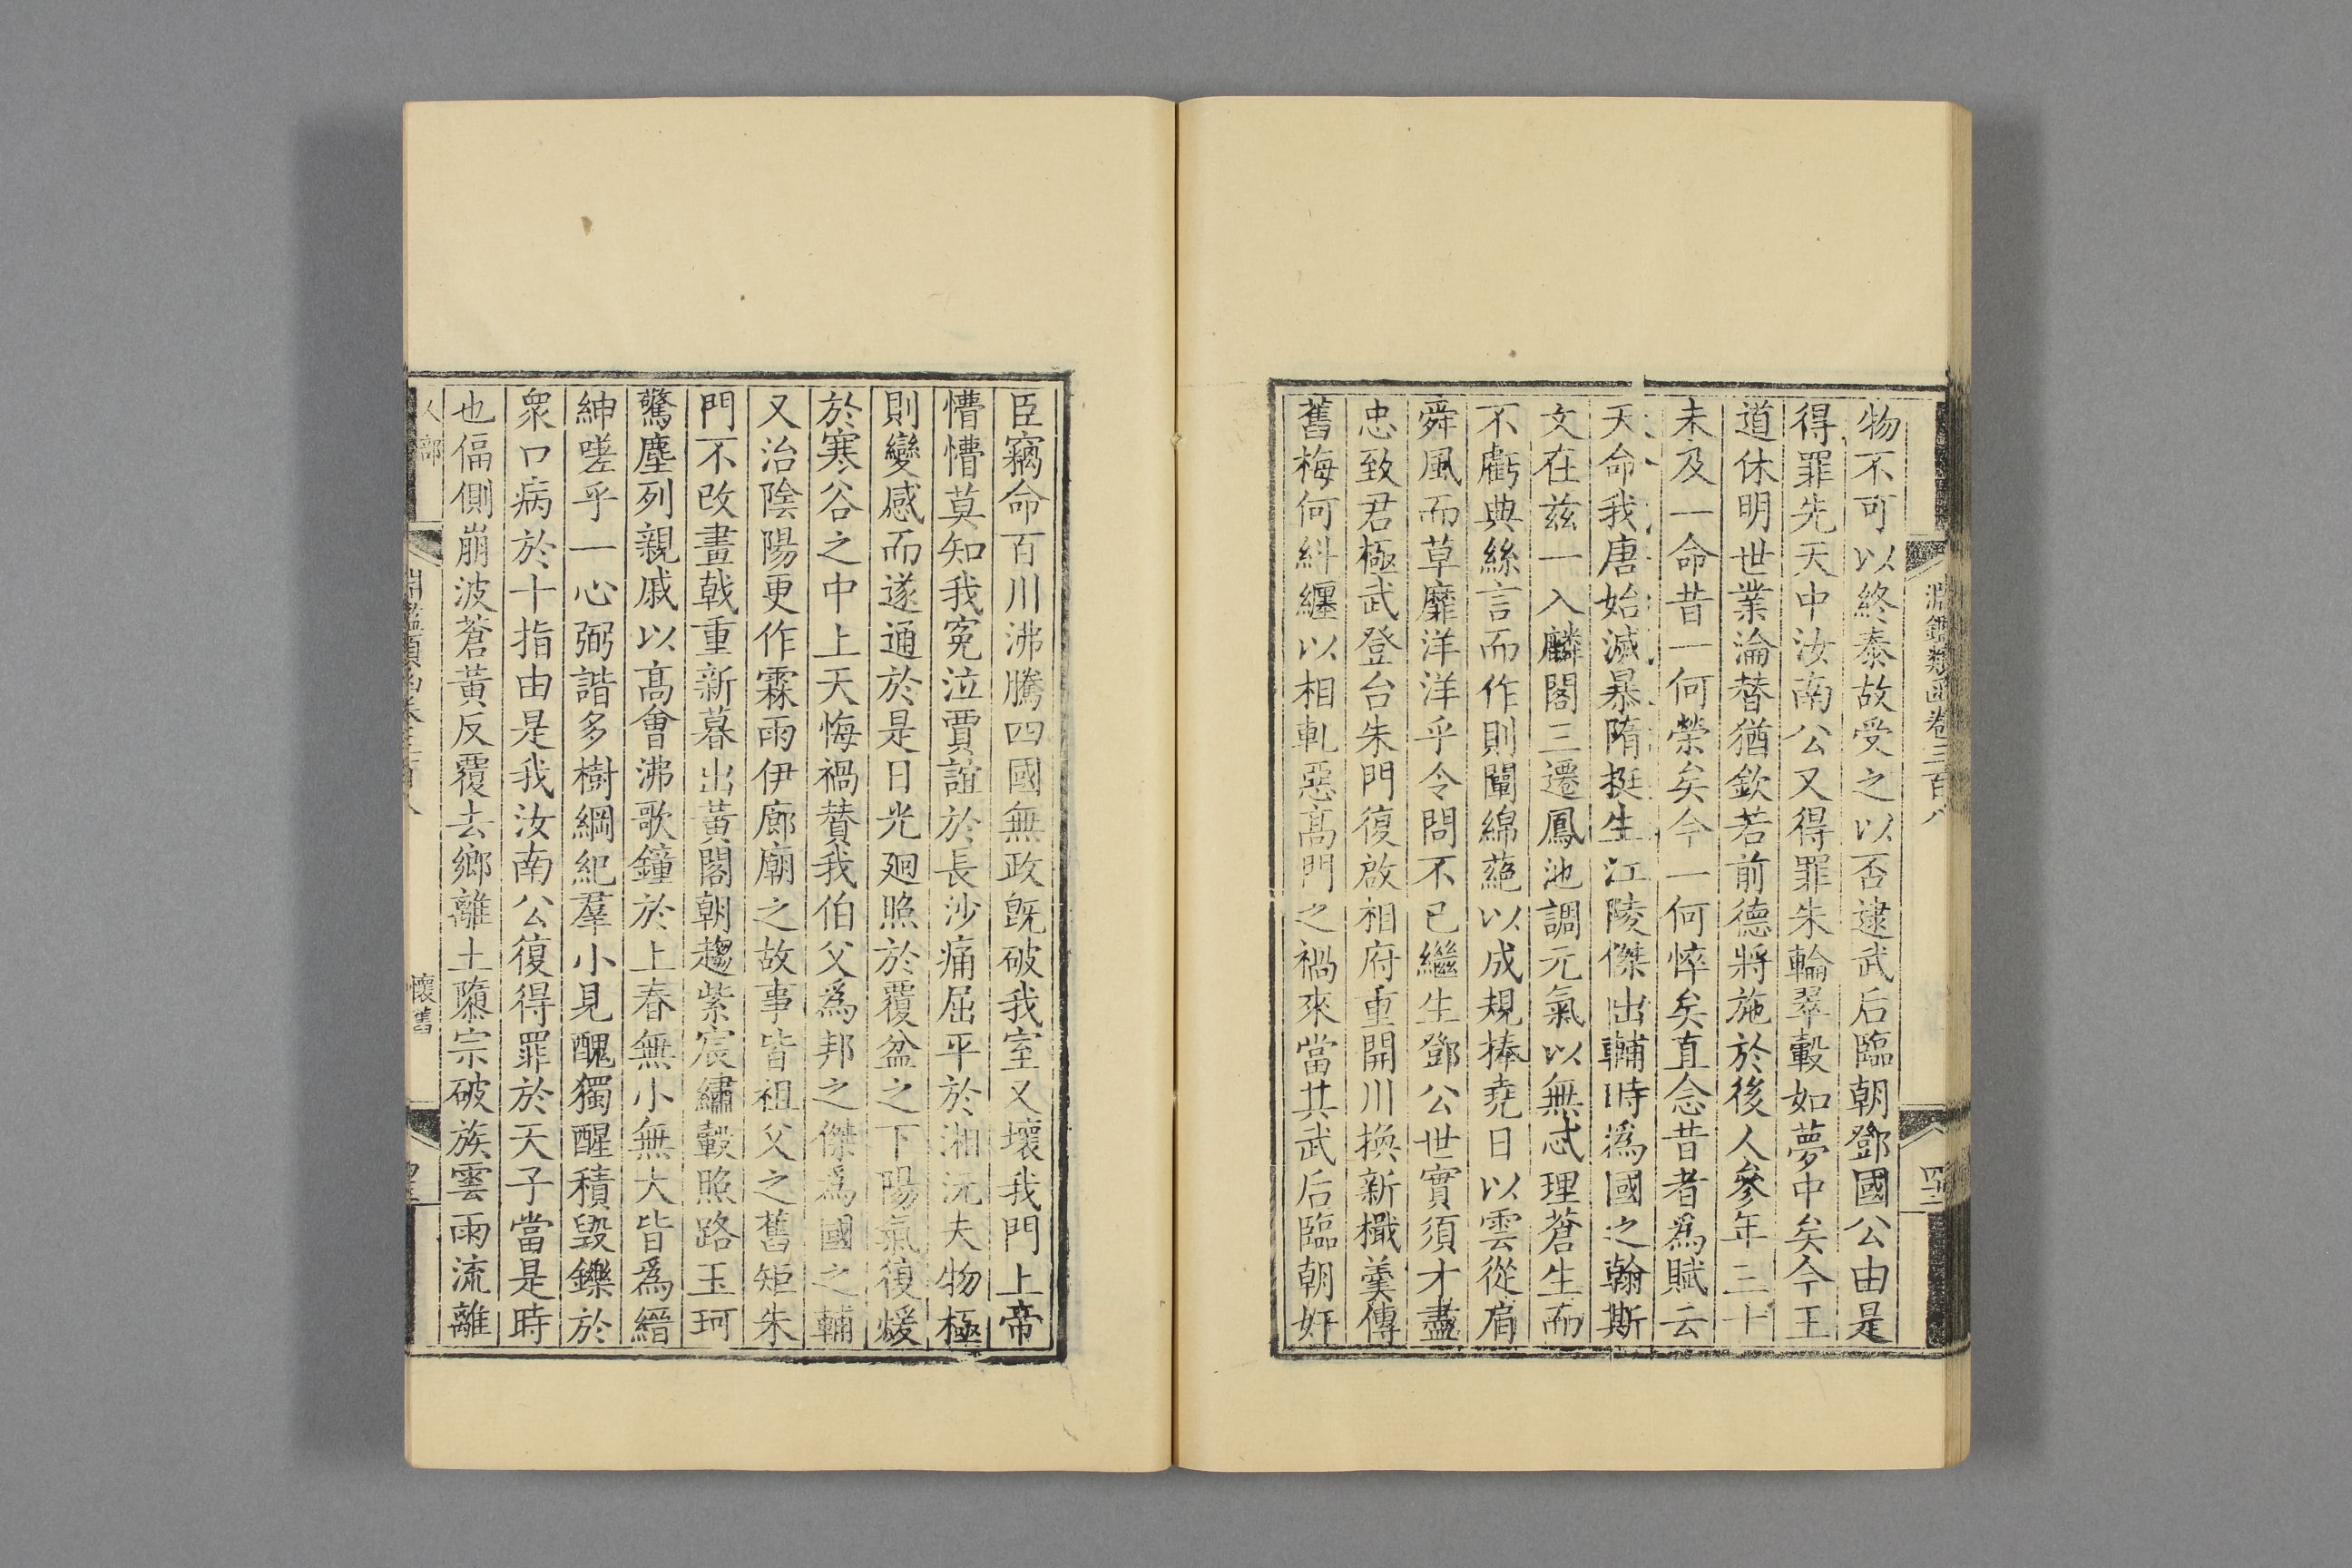 淵鑑類函卷三百八
物不可以終泰故受之以否逮武后臨朝鄧國公由是
得罪先天中汝南公又得罪朱輪翠轂如夢中矣今王
道休明世業淪替猶欽若前德將施於後人參年三十
未及一命昔一何榮矣今一何悴矣直念昔者爲賦云
天命我唐始滅暴隋挺生江陵傑出輔時爲國之翰斯
文在茲一入麟閣三遷鳳池調元氣以無忒理蒼生而
不虧典絲言而作則闡綿蕝以成規捧堯日以雲從扇
舜風而草靡洋洋乎令問不已繼生鄧公世實須才盡
忠致君極武登台朱門復啟相府重開川換新檝羹傳
舊梅何糾纏以相軋惡高門之禍來當其武后臨朝奸
臣竊命百川沸騰四國無政旣破我室又壞我門上帝
懵懵莫知我冤泣賈誼於長沙痛屈平於湘沅夫物極
則變感而遂通於是日光廻照於覆盆之下陽氣復煖
於寒谷之中上天悔禍贊我伯父爲邦之傑爲國之輔
又治陰陽更作霖雨伊廊廟之故事皆祖父之舊矩朱
門不改畫戟重新暮出黃閣朝趨紫宸繡轂照路玉珂
驚塵列親戚以高會沸歌鐘於上春無小無大皆爲縉
紳嗟乎一心弼諧多樹綱紀羣小見醜獨醒積毀鑠於
衆口病於十指由是我汝南公復得罪於天子當是時
也偪側崩波蒼黃反覆去鄉離土隳宗破族雲雨流離
人部
懷舊